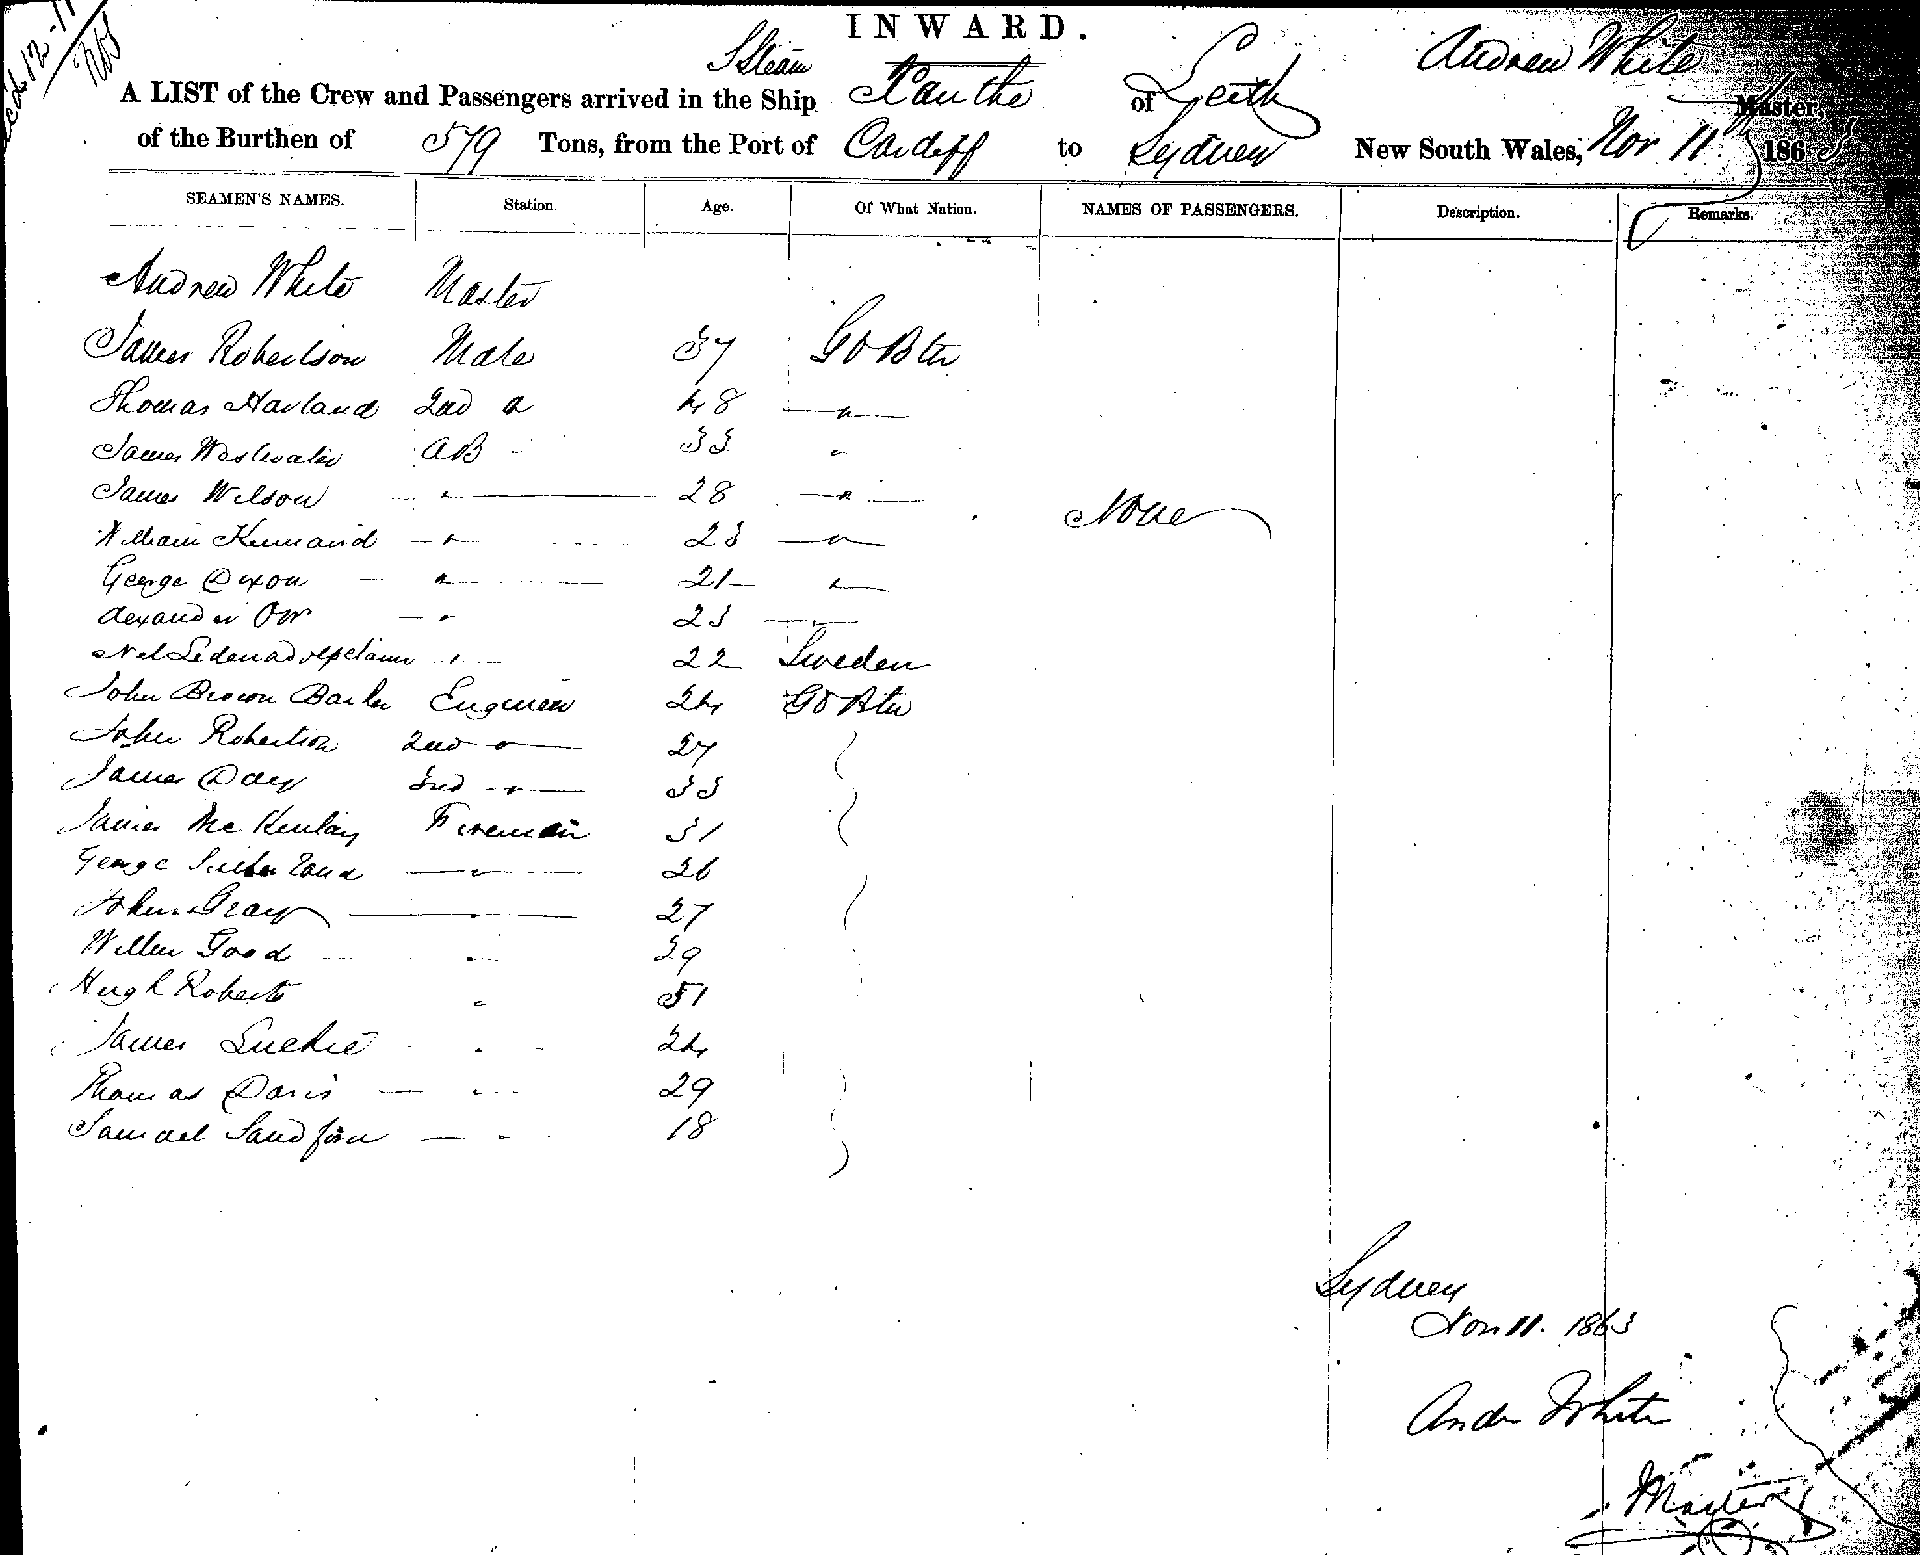 INWARD.
A LIST of the Crew and Passengers arrived in the Ship Steam Xanthe of Leith Andrew White Master,
of the Burthen of 579 Tons, from the Port of Cardiff to Sydney New South Wales, Nov 11 1863
SEAMEN'S NAMES. Station. Age. Of What Nation. NAMES OF PASSENGERS. Description. Remarks.
Andrew White Master
James Robertson Mate 37 Gt Btn
Thomas Harland 2nd " 48 "
James Westwater AB 33 "
James Wilson " 28 "
None
William Kinnaird " 23 "
George Dixon " 21 "
Alexander Orr " 23 "
22 Sweden
John Brown Barker Engineer 24 Gt Btn
John Robertson 2nd " 27
James Day 3rd " 33
James McKenlay Fireman 31
George Sutherland " 26
John Gray " 27
Willm Good " 39
Hugh Roberts " 51
James Luckie " 24
Thomas Davis " 29
Samuel 18
Sydney
Nov 11. 1863
Andw White
Master